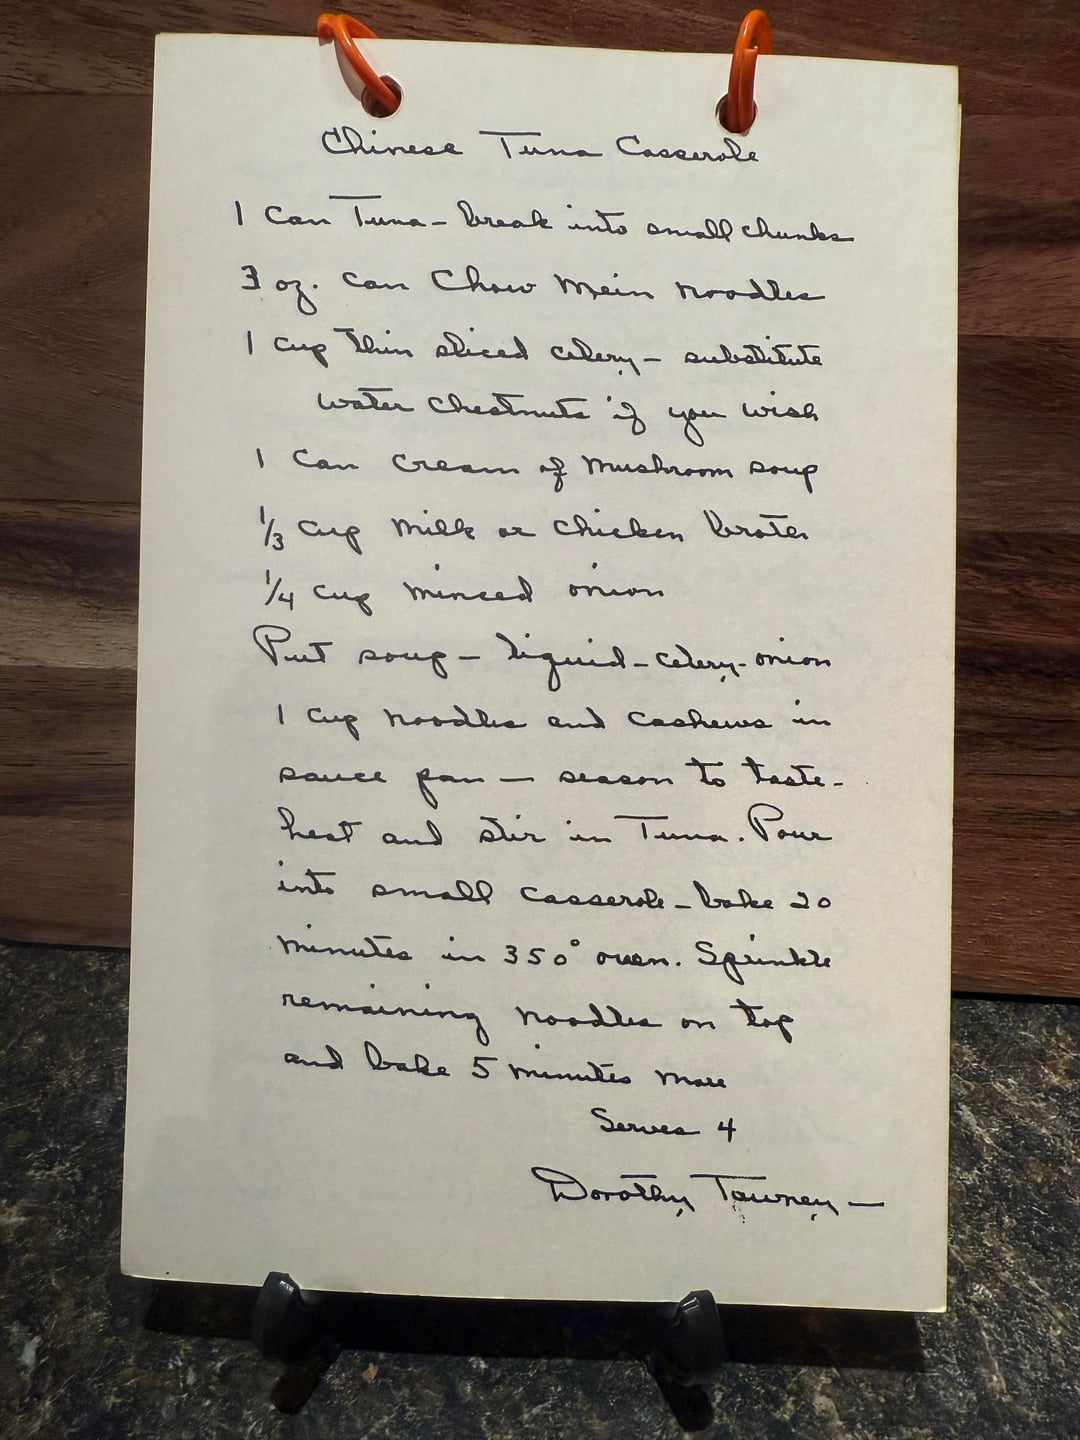 Chinese Tuna Casserole
1 Can Tuna - break into small chunks
3 oz. can Chow Mein Noodles
1 cup thin sliced celery - substitute
water chestnuts if you wish
1 can cream of mushroom soup
1/3 cup milk or chicken broth
1/4 cup minced onion
Put soup - liquid - celery - onion
1 cup noodles and cashews in
sauce pan - season to taste -
heat and stir in Tuna. Pour
into small casserole - bake 20
minutes in 350° oven. Sprinkle
remaining noodles on top
and bake 5 minutes more
Serves 4
Dorothy Tawney -